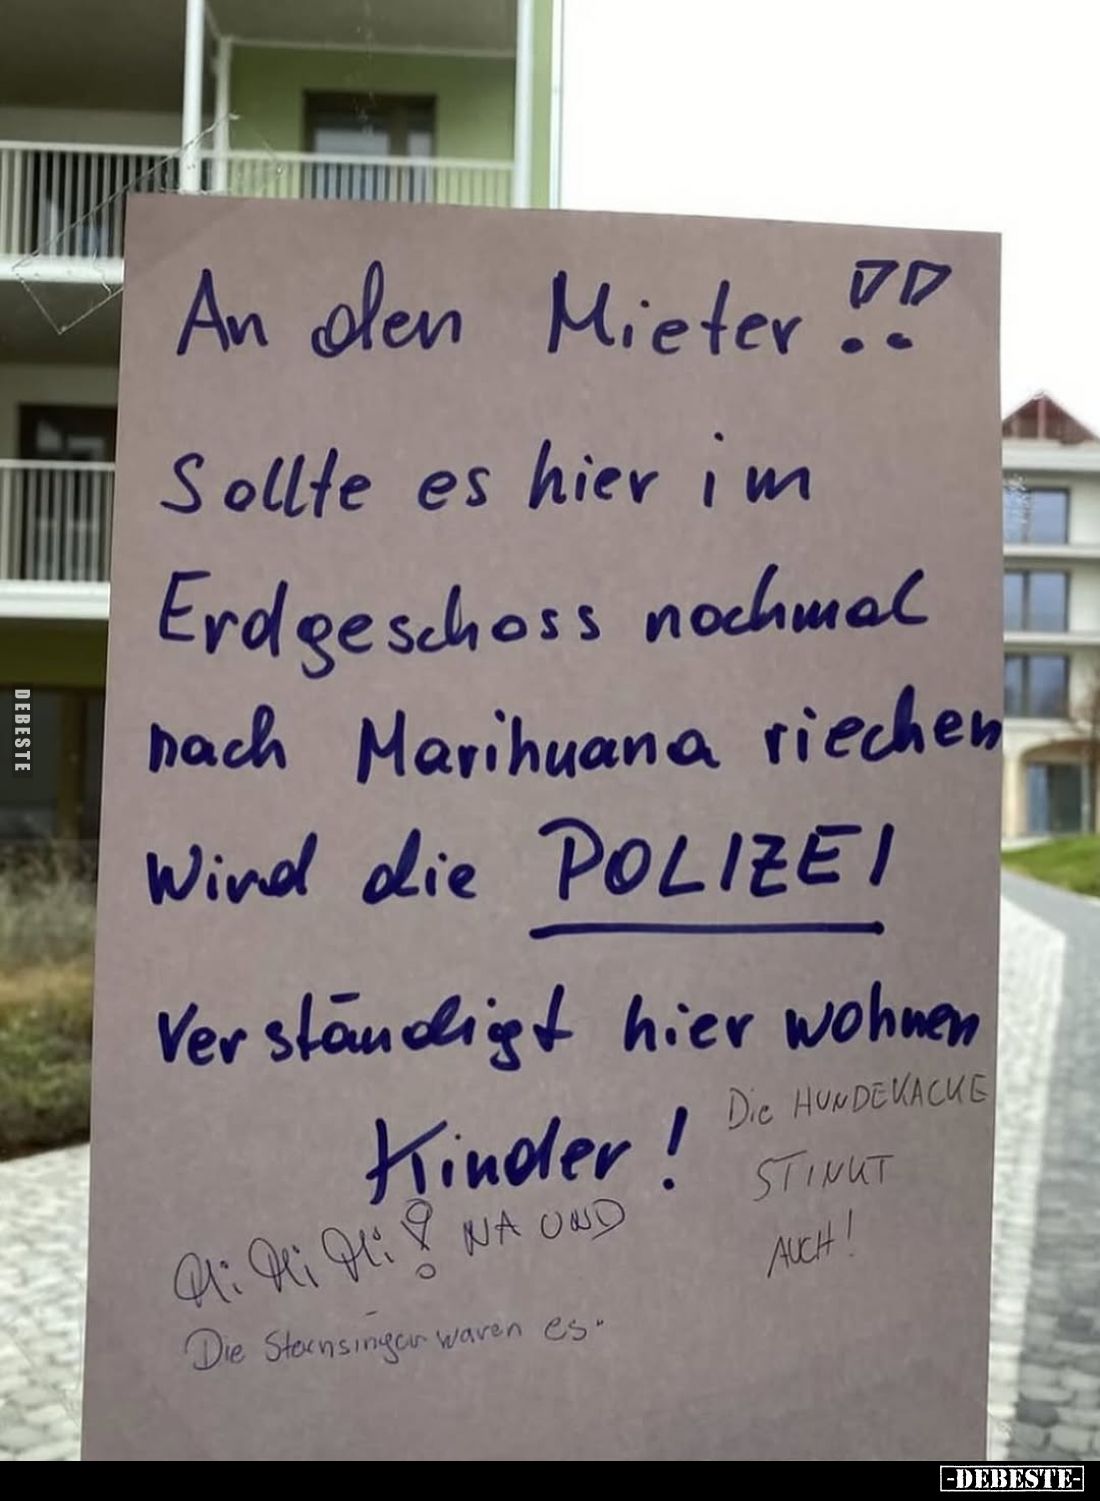 An den Mieter!!
Sollte es hier im
Erdgeschoss nochmal
nach Marihuana riechen
Wird die POLIZEI
Verständigt hier wohnen
Kinder!
Die HUNDEKACKE
STINKT
AUCH!
Mi Mi Mi! NA UND
Die Sternsinger waren es.
DEBESTE
-DEBESTE-